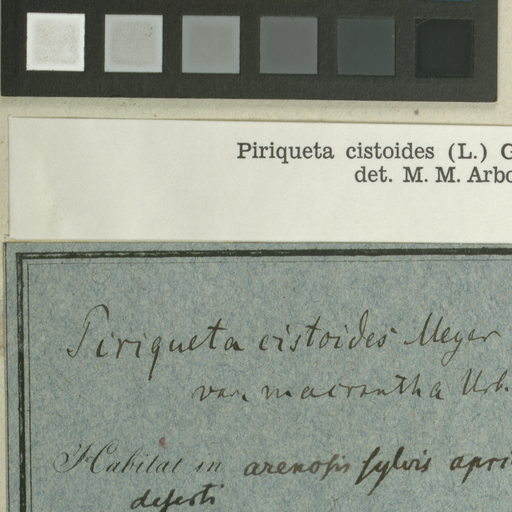 Piriqueta cistoides (L.) G
det. M. M. Arbo
Piriqueta cistoides Meyer
var. macrantha Urb.
Habitat in arenosis sylvis apri
deserti